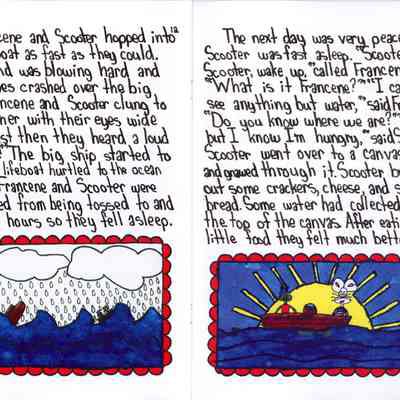 cene and Scooter hopped into 12
oat as fast as they could.
nd was blowing hard and
es crashed over the big
ncene and Scooter clung to
her with their eyes wide
st then they heard, a loud
" The big ship started to
lifeboat hurtled to the ocean
Francene and Scooter were
ed from being tossed to and
hours so they fell asleep.
The next day was very peace
Scooter was fast asleep. "Scoote
Scooter, wake up," called Francen
"What is it Francene?" "I ca
see anything but water," said Fr
"Do you know where we are?"
but I know I'm hungry," said S
Scooter went over to a canvas
and gnawed through it. Scooter bu
out some crackers, cheese, and s
bread. Some water had collected
the top of the canvas. After eati
little food they felt much bett